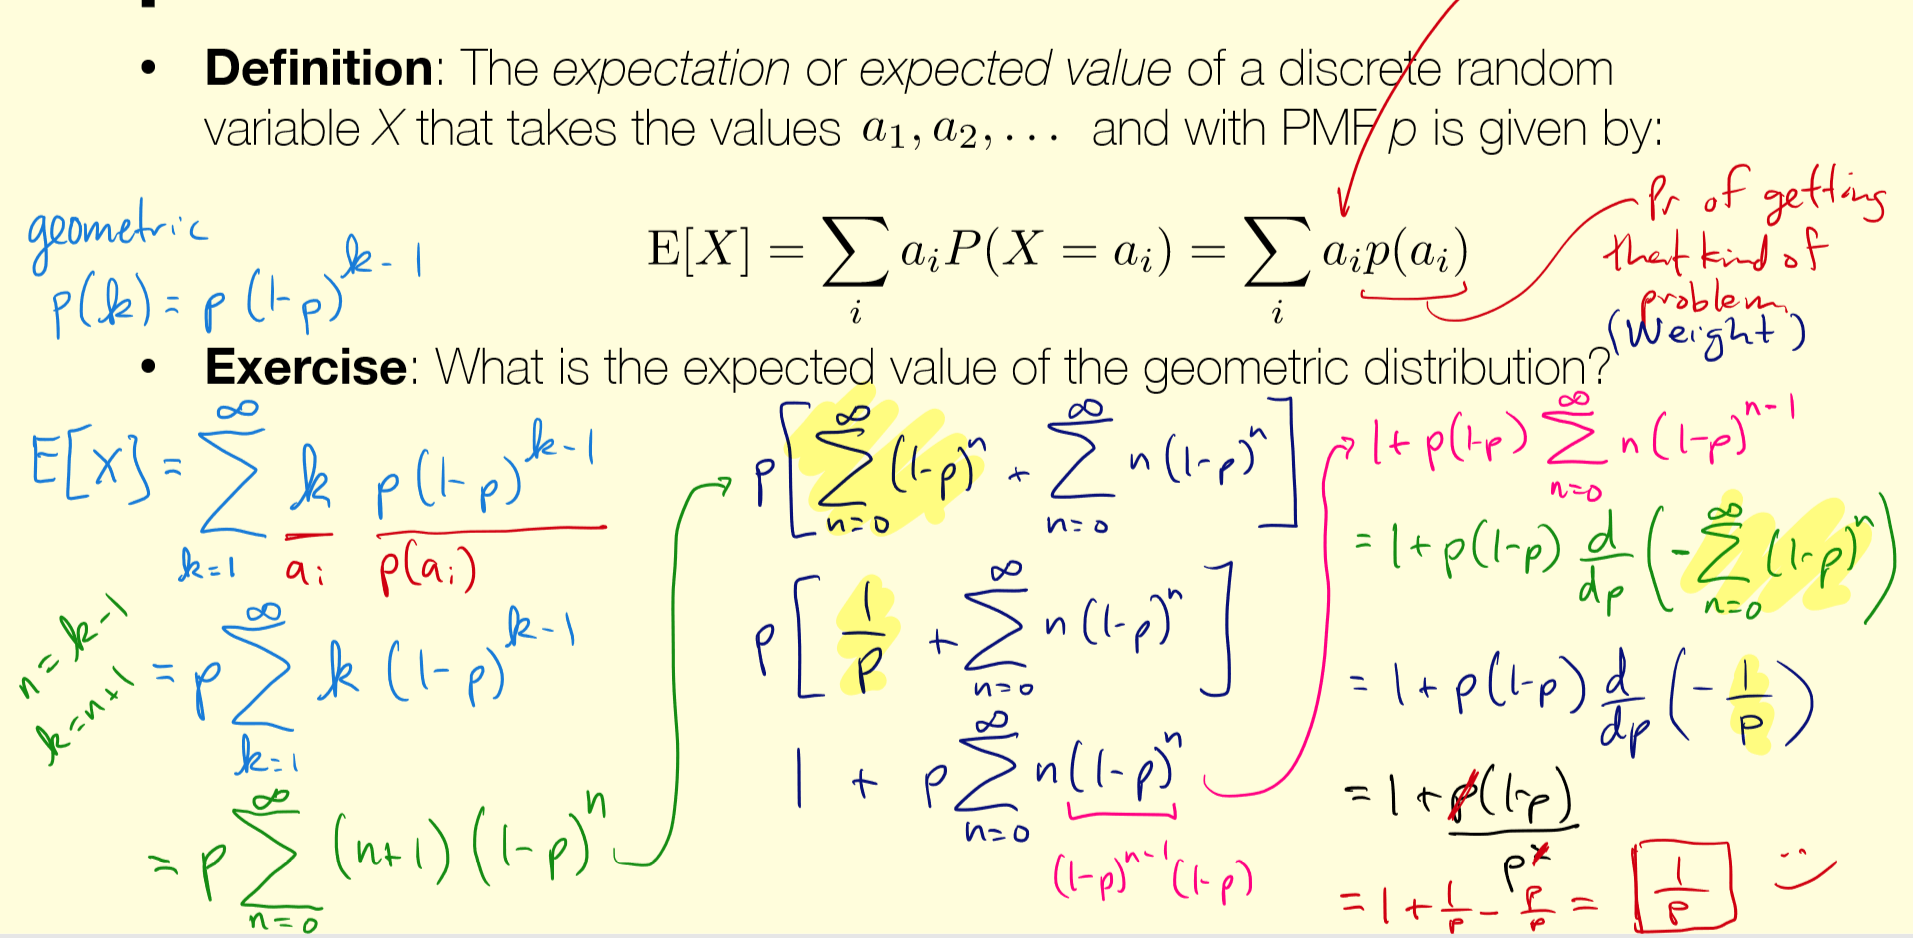 • Definition: The expectation or expected value of a discrete random
variable X that takes the values a₁, a₂, ... and with PMF p is given by:
E[X] = ∑_i a_i P(X = a_i) = ∑_i a_i p(a_i)
Pr of getting
that kind of
problem
(Weight)
geometric
p(k) = p (1-p)^{k-1}
• Exercise: What is the expected value of the geometric distribution?
E[X] = ∑_{k=1}^{∞} k p(1-p)^{k-1}
a_i p(a_i)
n = k-1
k = n+1
= p ∑_{k=1}^{∞} k (1-p)^{k-1}
= p ∑_{n=0}^{∞} (n+1) (1-p)^n
p [ ∑_{n=0}^{∞} (1-p)^n + ∑_{n=0}^{∞} n (1-p)^n ]
p [ 1/p + ∑_{n=0}^{∞} n (1-p)^n ]
1 + p ∑_{n=0}^{∞} n (1-p)^n
(1-p)^{n-1} (1-p)
1 + p(1-p) ∑_{n=0}^{∞} n (1-p)^{n-1}
= 1 + p(1-p) d/dp (- ∑_{n=0}^{∞} (1-p)^n)
= 1 + p(1-p) d/dp (- 1/p)
= 1 + p(1-p)/p²
= 1 + 1/p - p/p = 1/p